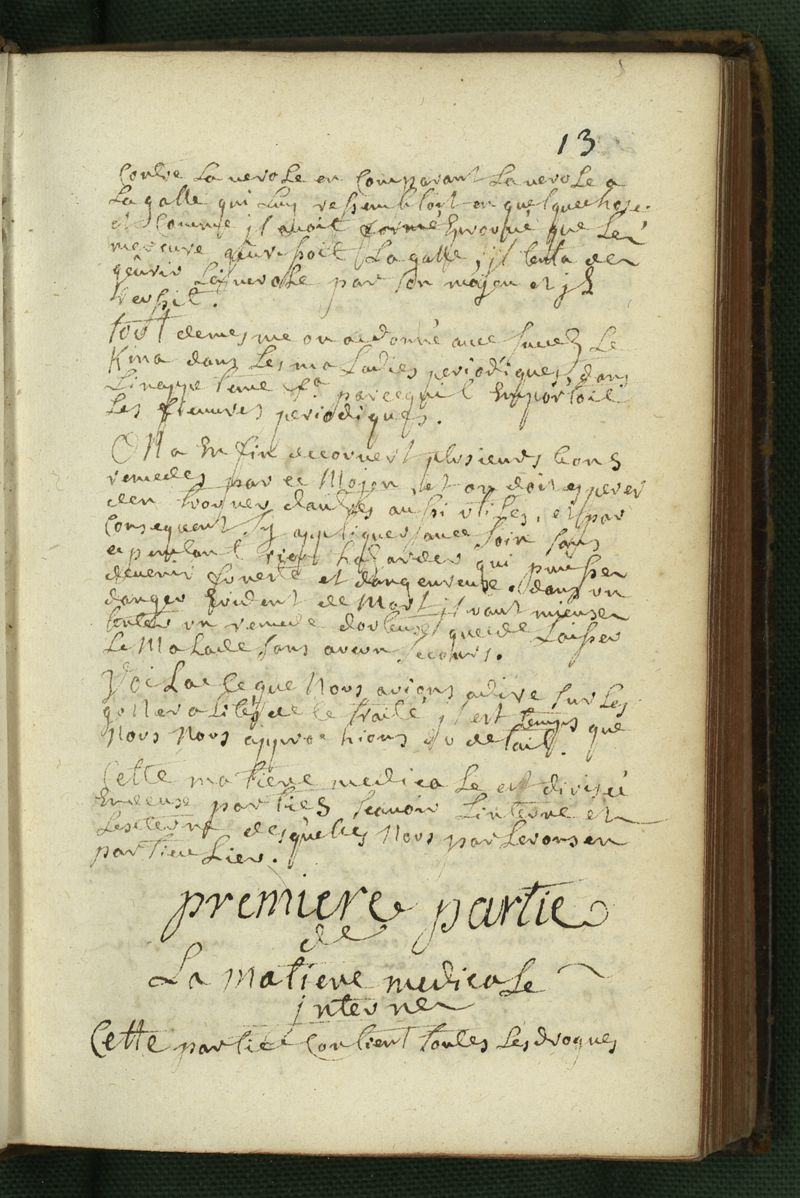 13
contre la verole en comparant la verole a
la galle qui luy ressembloit en quelque chose.
et comme il avoit esprouvé que le
mercure guerissoit la galle, jl tenta de
guerir la verole par son moyen et jl
reussit.
tout demesme on a donné avec succez le
Kina dans les maladies periodiques, dans
parce qu'il Emportoit
les fievres periodiques.
On a Enfin decouvert plusieurs bons
remedes par ce Moyen, et on doit esperer
den trouver dautres aussi utiles, et par
consequent sy appliquer avec soin sans
cependant rien hazarder qui puisse
devenir funeste et dangereuse. dans un
danger Evident de Mort jl vaut mieux
tenter un remede douteux que de laisser
le Malade sans aucun secours.
Voila ce que Nous avions adire sur les
generalités de ce traité, jl est temps que
Nous Nous approchions du detail.
Cette matiere medicale est divisée
En deux parties scavoir Linterne et
Lexterne desquelles Nous parlerons en
particulier.
premiere partie
de
La matiere medicale
jnterne
Cette partie contient toutes les drogues